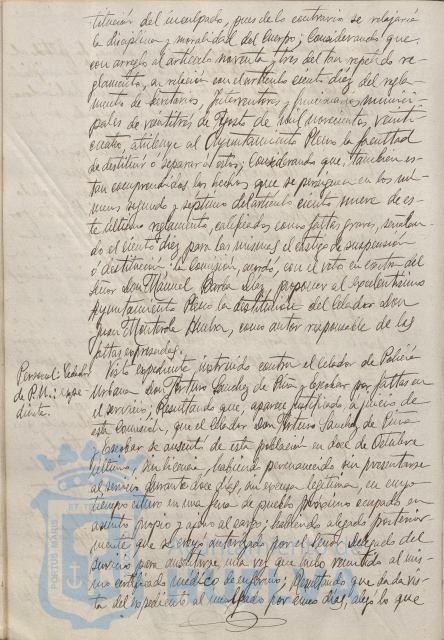 titución del inculpado, pues de lo contrario se relajaría
la disciplina y moralidad del Cuerpo; Considerando que
con arreglo al artículo noventa y tres del tan repetido re-
glamento, en relación con el artículo ciento diez del regla-
mento de Secretarios, Interventores y funcionarios munici-
pales de veintitres de Agosto de mil novecientos veinti-
cuatro, atribuye al Ayuntamiento Pleno la facultad
de destituir o separar a estos; Considerando que, tambien es-
tan comprendidos los hechos que se persiguen en los nú-
meros segundo y septimo del artículo ciento nueve de es-
te último reglamento, calificados como faltas graves, señalan-
do el ciento diez para los mismos el castigo de suspensión
o destitución: la Comisión, acordó, con el voto en contra del
Señor Don Manuel García Díaz, proponer al Excelentísimo
Ayuntamiento Pleno la destitución del Celador Don
Juan como autor responsable de las
faltas expresadas.
Personal: Celador
de P. U.: expe-
diente.
Visto expediente instruido contra el Celador de Policía
Urbana Don Arturo Sanchez de Piña y Escobar por faltas en
el servicio; Resultando que, aparece justificado, a juicio de
esta Comisión, que el Celador Don Arturo Sanchez de Piña
y Escobar se ausentó de esta población en doce de Octubre
último, sin licencia, habiendo permanecido sin presentarse
al servicio durante doce días, sin excusa legítima, en cuyo
tiempo estuvo en una feria de pueblo próximo ocupado en
asunto propio y ajeno al cargo; habiendo alegado posterior-
mente que se creyó autorizado por el Señor Delegado del
servicio para ausentarse, una vez que hubo remitido al mis-
mo certificado médico de enfermo; Resultando que dada vis-
ta del expediente al inculpado por cinco días, alegó lo que
PORTUS MARIS